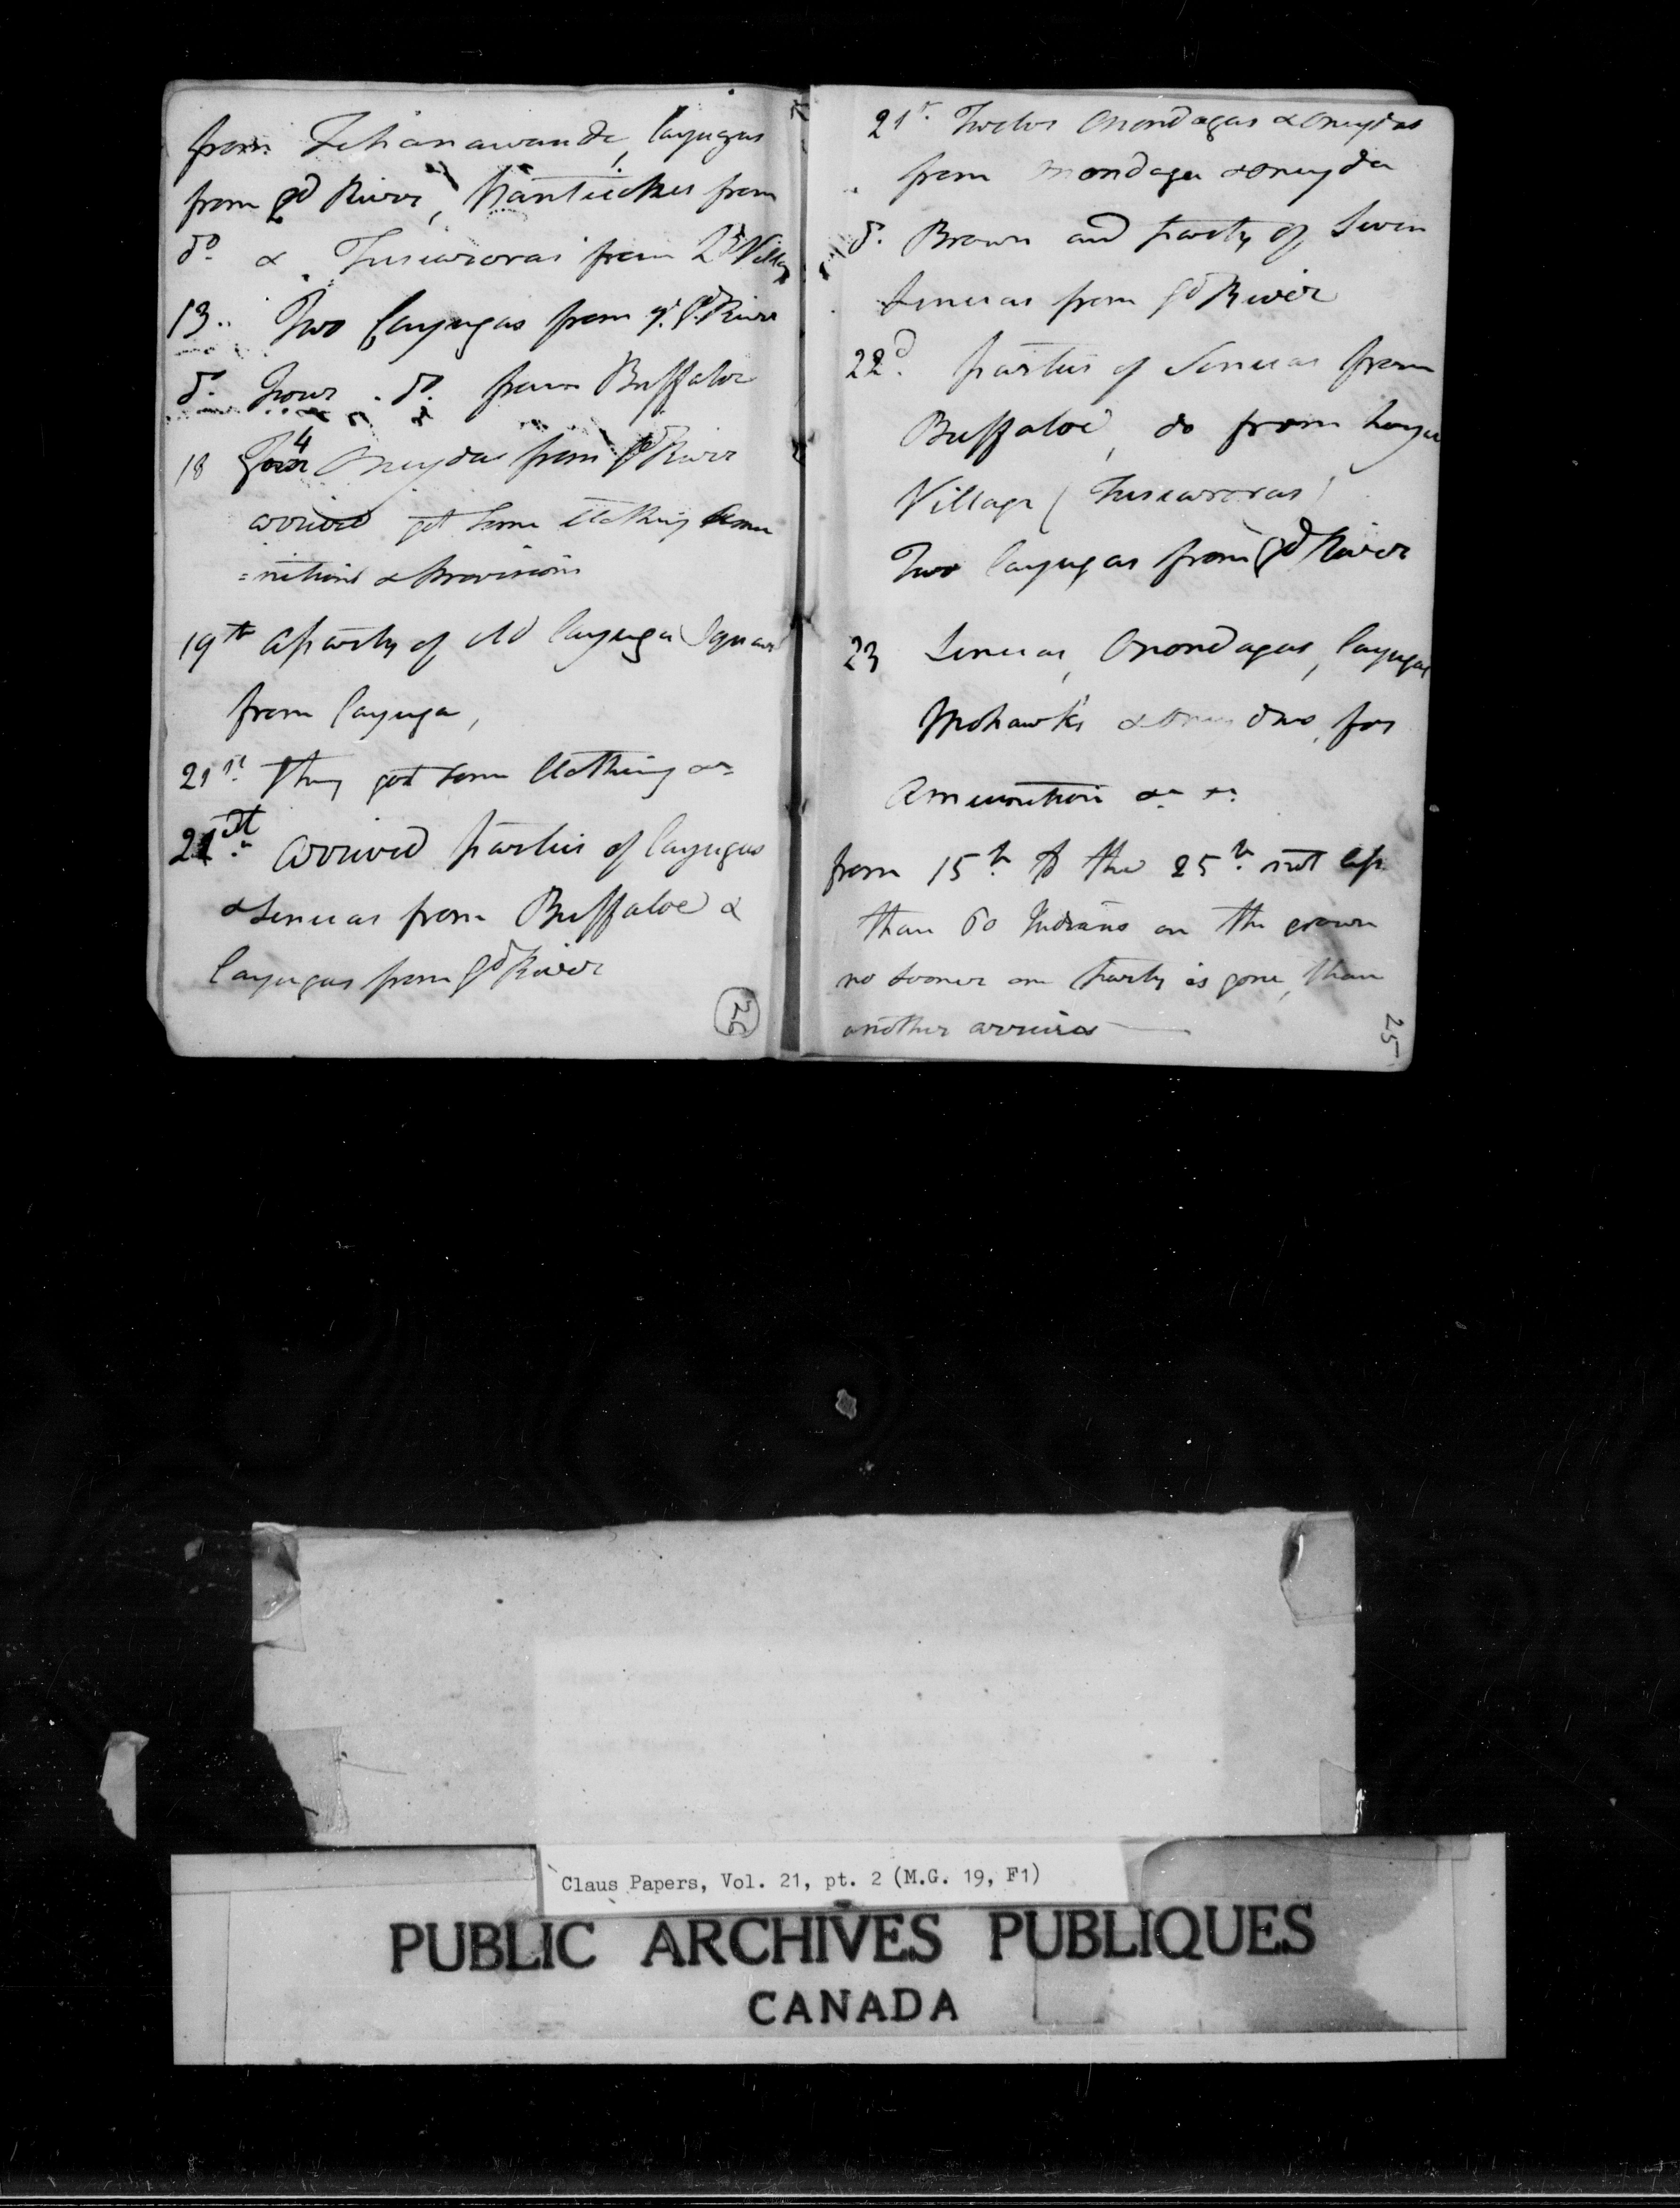 from Tehanawande, Cayugas
from Gd River, Nantiekes from
do & Tuscaroras from Village
13.. Two Cayugas from Gd River
do Four do. from Buffaloe
18 4 Oneydas from Gd River
arrived got some Clothing Amu
=nitions & Provisions
19th a party of old Cayuga Squaws
from Cayuga,
21st They got some Clothing &c
21st arrived parties of Cayugas
& Senecas from Buffaloe &
Cayugas from Gd River
26
21st. Twelve Onondagas & Oneydas
from Onondaga & Oneyda
do. Brown and party of Seven
Senecas from Gd River
22d. parties of Senecas from
Buffaloe, do from
Village (Tuscaroras)
Two Cayugas from Gd River
23 Senecas, Onondagas, Cayugas
Mohawks & Oneydas, for
Ammunition &c &c
from 15th to the 25th not less
than 60 Indians on the groun
no sooner one party is gone, than
another arrives —
25
Claus Papers, Vol. 21, pt. 2 (M.G. 19, F1)
PUBLIC ARCHIVES PUBLIQUES
CANADA